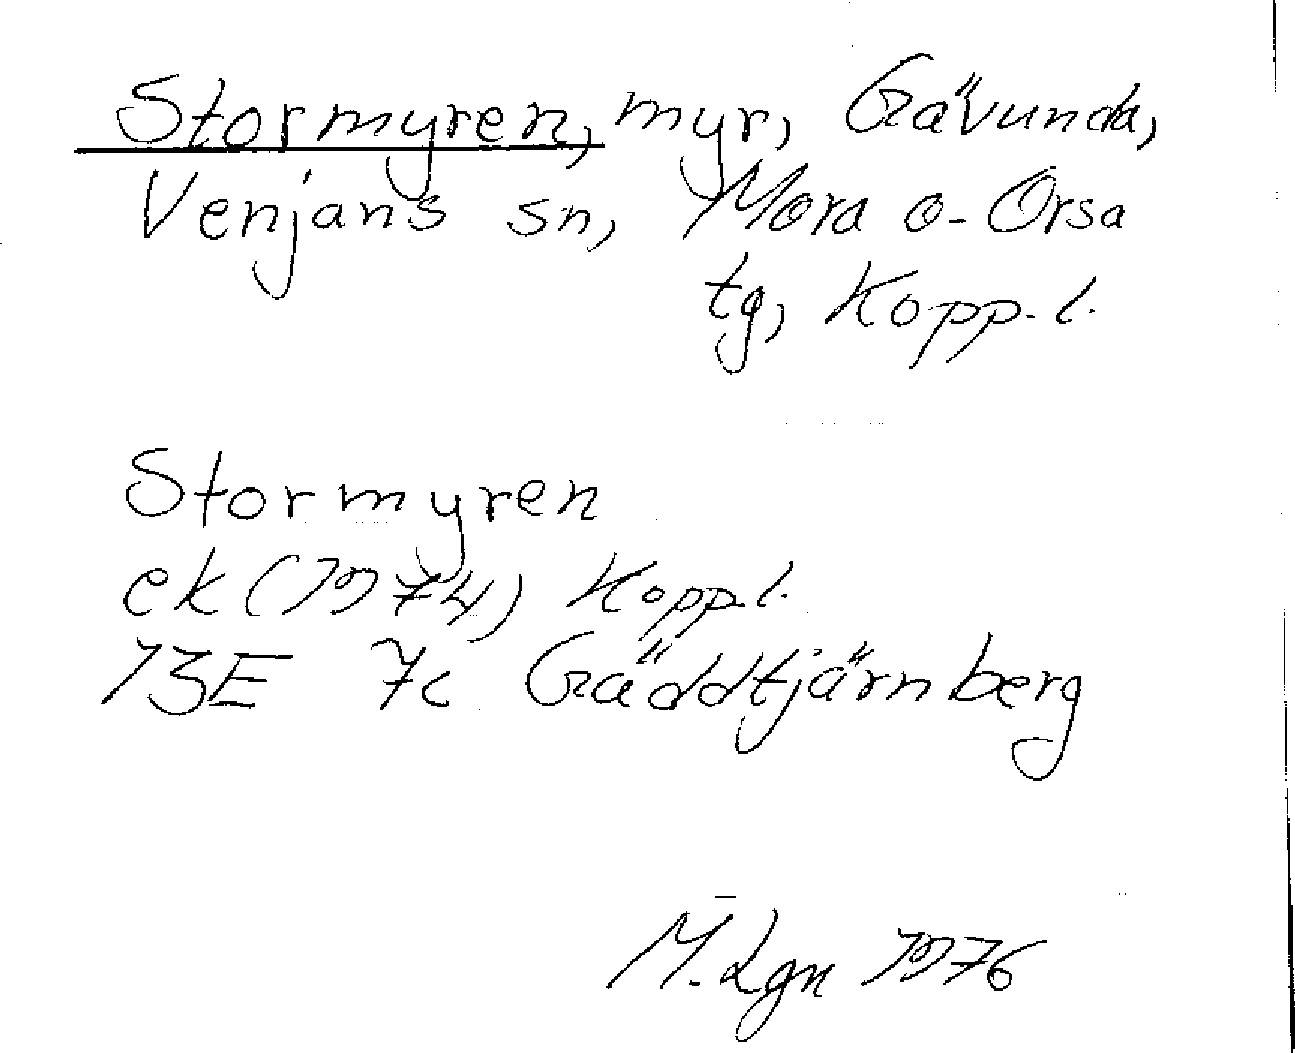 Stormyren, myr, Gävunda,
Venjans sn, Mora o. Orsa
tg, Kopp. l.
Stormyren
ek (1974) Kopp. l.
13E 7c Gäddtjärnberg
M. Lgn 1976